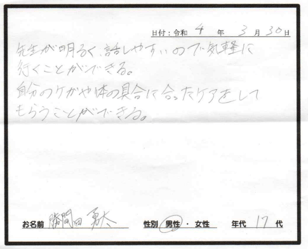 日付：令和 4 年 3 月 30 日
先生が明るく、話しやすいので気軽に
行くことができる。
自分のケガや体の具合に合ったケアをして
もらうことができる。
お名前 勝間田 勇太 性別 男性・女性 年代 17 代